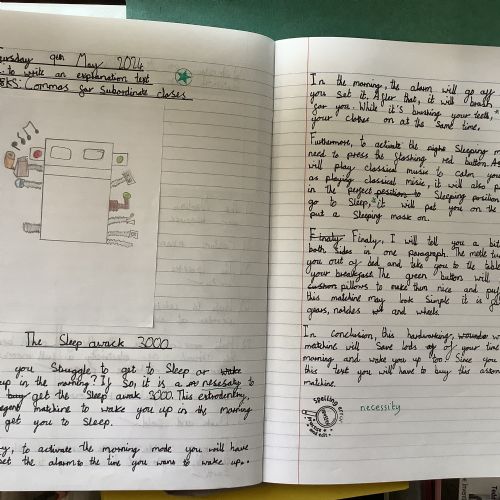 Thursday 9th May 2024
to write an explanation text
Commas for Subordinate clases
The Sleep awack 3000
you Struggle to get to Sleep or wake
up in the morning? If So, it is a nesesaty to
buy get the Sleep awack 3000. This extrodentry,
matchine to wake you up in the morning
get you to Sleep.
to activate the morning mode you will have
set the alarm to the time you want to wake up.
In the morning, the alarm will go off
you Set it. After that, it will brush
for you. While it's brushing your teeth,
your clothes on at the Same time.
Furthermore, to activate the night Sleeping
need to press the flashing red button. As
will play classical music to calm you
as playing classical misic, it will also
in the perfect position to Sleeping position
go to Sleep, it will put you on the
put a Sleeping mask on.
Finaly Finaly, I will tell you a bit
both Sides in one paragraph. The
you out of bed and take you to the table
your breakfast. The green button will
cushon pillows to make them nice and
this matchine may look Simple it is
gears, notches and wheels.
In conclusion, this hardworking,
matchine will Save lods of your time
morning and wake you up too! Since you
this text you will have to buy this
matchine.
spelling error
practice
and edit
necessity